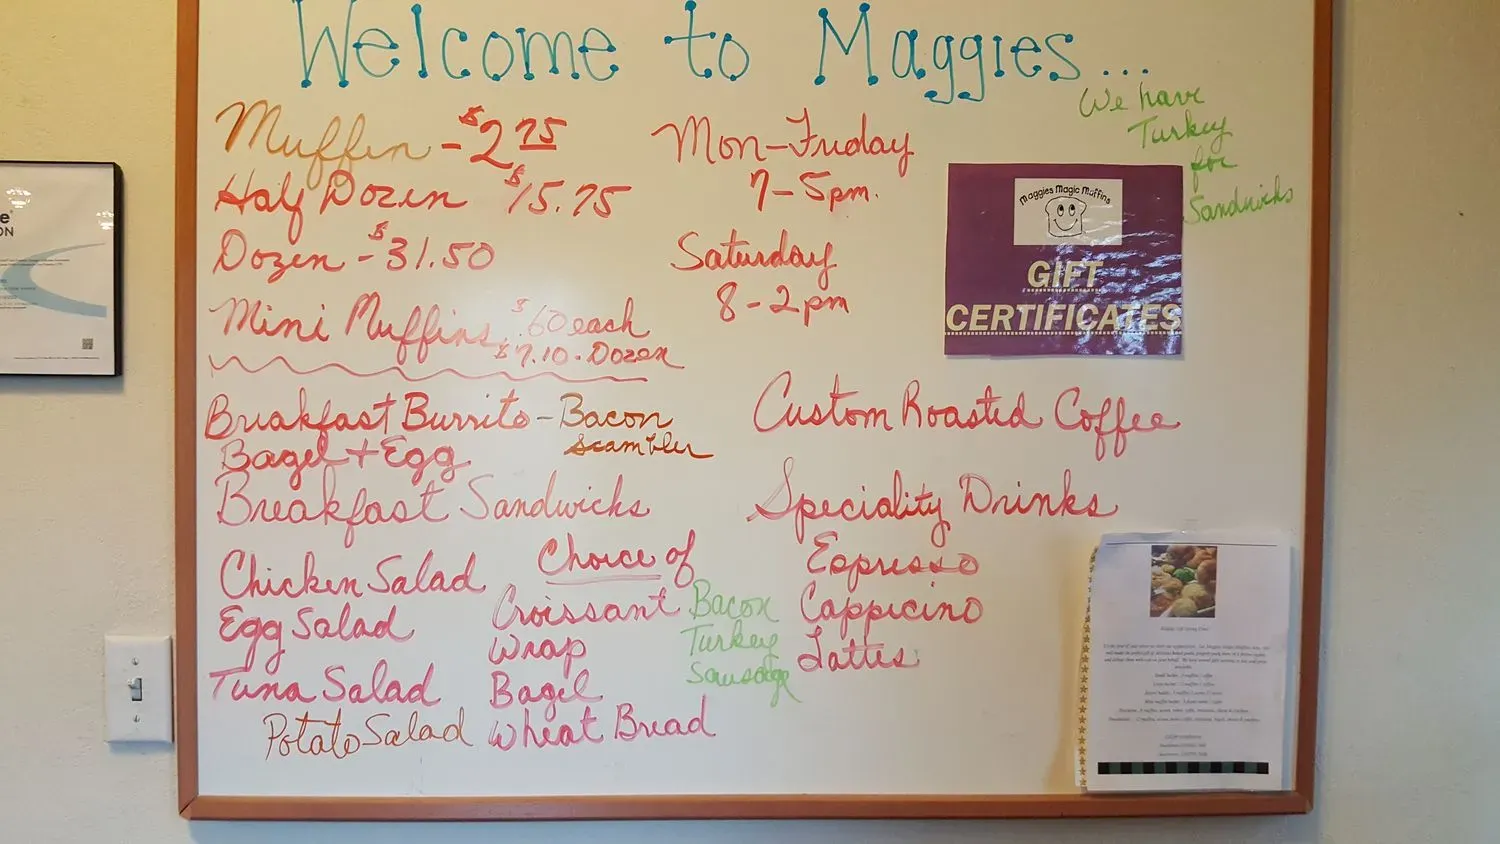 Welcome to Maggies...
Muffin - $2 75
Half Dozen $15.75
Dozen - $31.50
Mini Muffins $.60 each
$7.10 - Dozen
Mon-Friday
7-5pm.
Saturday
8-2pm
We have
Turkey
for
Sandwichs
Maggies Magic Muffins
GIFT
CERTIFICATES
Breakfast Burrito - Bacon
Scambler
Bagel + Egg
Breakfast Sandwichs
Chicken Salad
Egg Salad
Tuna Salad
Potato Salad
Choice of
Croissant
Wrap
Bagel
Wheat Bread
Bacon
Turkey
Sausage
Custom Roasted Coffee
Speciality Drinks
Espresso
Cappicino
Lattes
e
ON